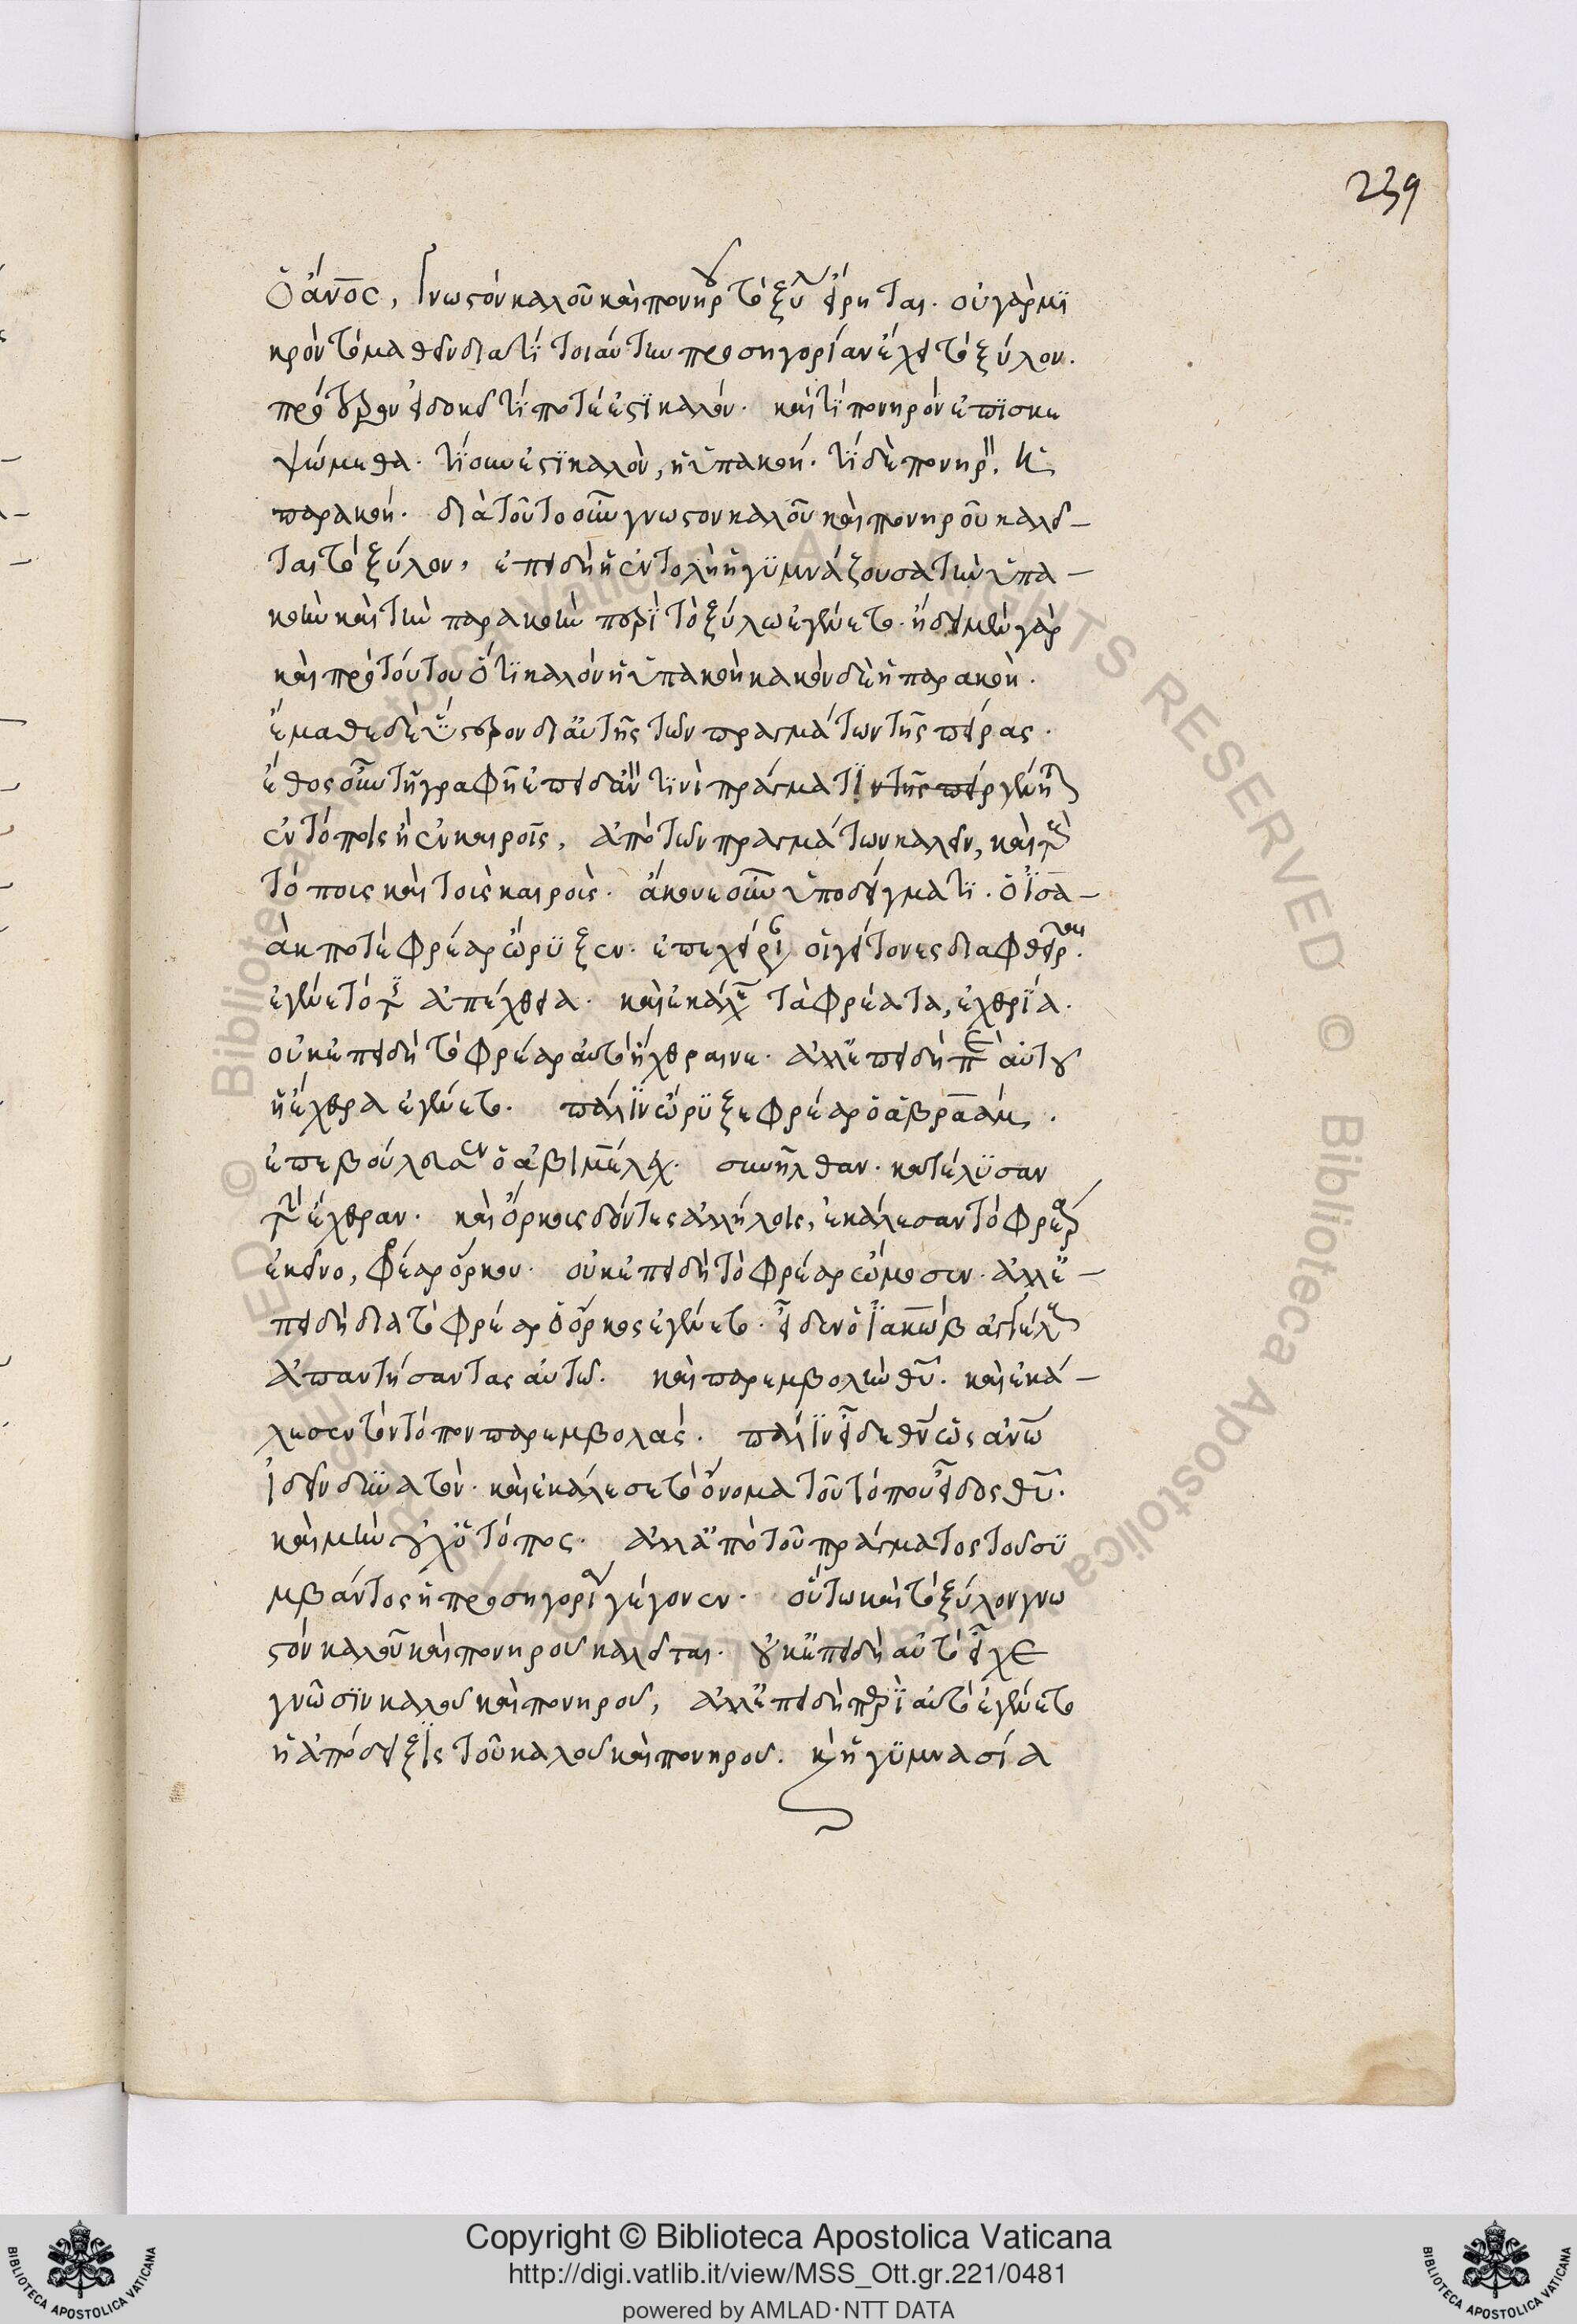 239
ὁ ἄνος, γνωστὸν καλοῦ καὶ πονηροῦ τὸ ξύλον εἴρηται. οὐ γὰρ μι
κρὸν τὸ μαθεῖν διατί τοιαύτην προσηγορίαν ἔχει τὸ ξύλον.
πρότερον εἰ δοκεῖ τί ποτέ ἐστι καλόν. καὶ τί πονηρὸν ἐπισκε
ψώμεθα. τί οὖν ἐστι καλὸν, ἡ ὑπακοή. τί δὲ πονηρόν. ἡ
παρακοή. διὰ τοῦτο οὖν γνωστον καλοῦ καὶ πονηροῦ καλεῖ-
ται τὸ ξύλον, ἐπειδὴ ἡ ἐντολὴ ἡ γυμνάζουσα τὴν ὑπα-
κοὴν καὶ τὴν παρακοὴν περὶ τὸ ξύλω ἐγένετο. ἤδει μὲν γὰρ
καὶ πρὸ τούτου ὅτι καλὸν ἡ ὑπακοὴ κακὸν δὲ ἡ παρακοὴ.
ἔμαθε δὲ ὕστερον δι αὐτῆς τῶν πραγμάτων τῆς πείρας.
ἔθος οὖν τῇ γραφῇ ἐπειδάν τινὶ πράγματι ν τῆς πείρ γένηται
ἐν τόποις ἢ ἐν καιροῖς, ἀπὸ τῶν πραγμάτων καλεῖν, καὶ τοὺς
τόποις καὶ τοὶς καιροὶς. ἄκουε οὖν ὑποδείγματι. ὁ ἰσα-
ὰκ ποτέ φρέαρ ὤρυξεν. ἐπεχείρουν οἱ γείτονες διαφθεῖραι.
ἐγένετό τις ἀπέχθεια. καὶ ἐκάλεσε τὰ φρέατα, ἐχθρία.
οὐκ ἐπειδὴ τὸ φρέαρ αὐτὸ ἤχθραινε. ἀλλ ἐπειδὴ περὶ αὐτοῦ
ἡ ἔχθρα ἐγένετο. πάλιν ὤρυξε φρέαρ ὁ ἀβραάμ.
ἐπεβούλευσεν ὁ ἀβιμέλεχ. συνῆλθαν. κατέλυσαν
τὴν ἔχθραν. καὶ ὅρκοις δόντες ἀλλήλοις, ἐκάλεσαν τὸ φρέαρ
ἐκεῖνο, φρέαρ ὅρκου. οὐκ ἐπειδὴ τὸ φρέαρ ὤμοσεν. ἀλλ ἐ-
πειδὴ διὰ τὸ φρέαρ ὁ ὅρκος ἐγένετο. εἶδεν ὁ ἰακὼβ ἀγγέλους
ἀπαντήσαντας αὐτῶ. καὶ παρεμβολὴν θῦ. καὶ ἐκά-
λεσεν τὸν τόπον παρεμβολάς. πάλιν εἶδε θν ὡς ἀνω
ἰδεῖν δυνατὸν. καὶ ἐκάλεσε τὸ ὄνομα τοῦ τόπου εἶδος θῦ.
καὶ μὴν οὐχ ὁ τόπος. ἀλλ ἀπὸ τοῦ πράγματος τοῦ συ
μβάντος ἡ προσηγορία γέγονεν. οὕτω καὶ τὸ ξύλον γνω
στὸν καλοῦ καὶ πονηροῦ καλεῖται. οὐκ ἐπειδὴ αὐτὸ εἶχε
γνῶσιν καλοῦ καὶ πονηροῦ, ἀλλ ἐπειδὴ περὶ αὐτὸ ἐγένετο
ἡ ἀπόδειξις τοῦ καλοῦ καὶ πονηροῦ. καὶ ἡ γυμνασία
Copyright © Biblioteca Apostolica Vaticana
http://digi.vatlib.it/view/MSS_Ott.gr.221/0481
powered by AMLAD·NTT DATA